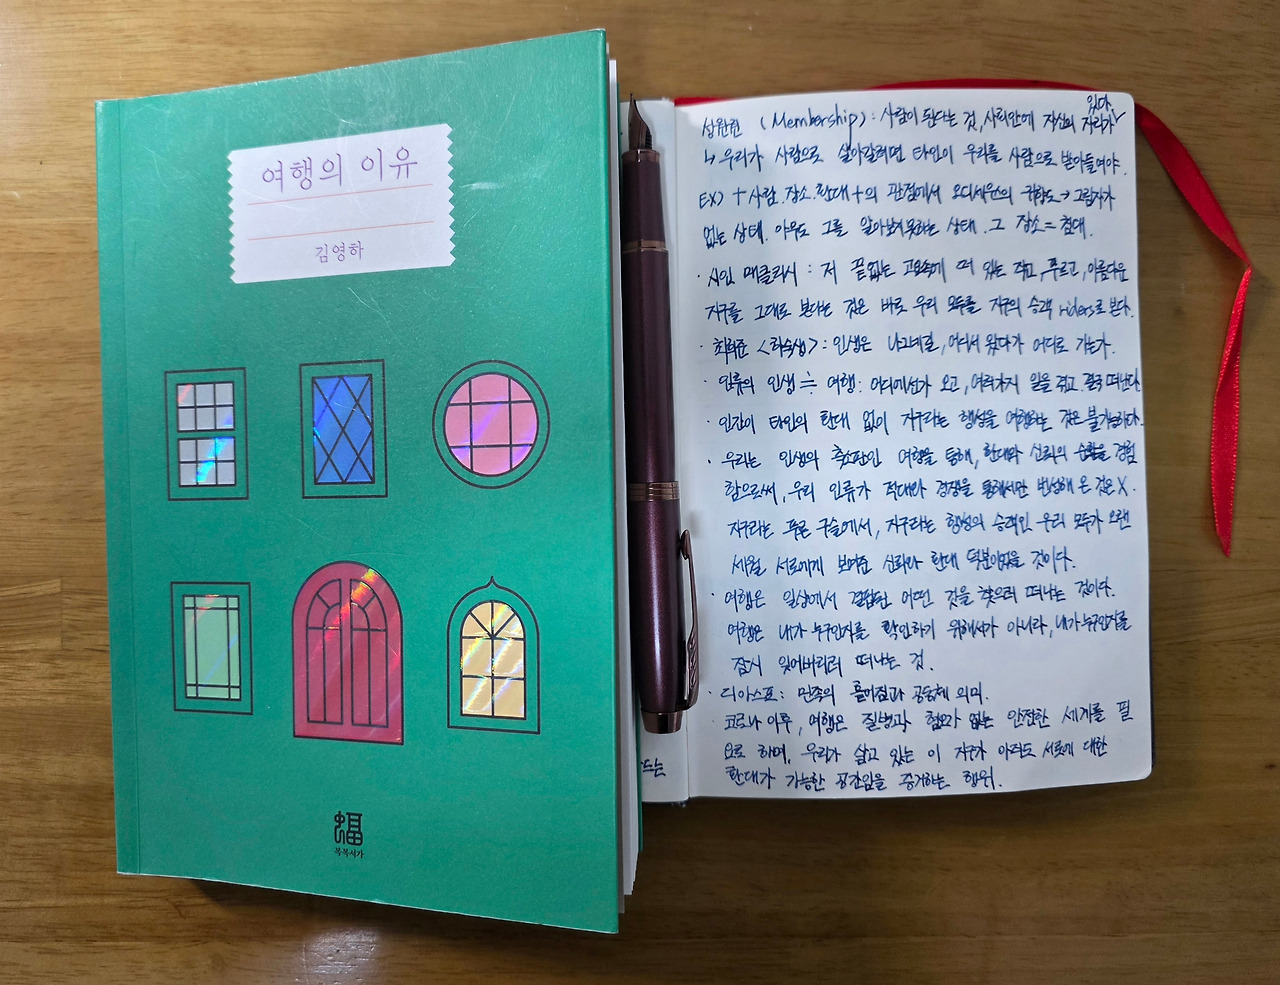 여행의 이유
김영하
복복서가
성원권 (Membership) : 사람이 된다는 것, 사회안에 자신의 자리가 있다.
↳ 우리가 사람으로 살아갈려면 타인이 우리를 사람으로 받아들여야.
EX) + 사람. 장소. 환대 + 의 관점에서 오디세우스의 귀향도 → 그림자가
없는 상태. 아무도 그를 알아보지못하는 상태. 그 장소 = 침대.
· 시인 매클리시 : 저 끝없는 고요속에 떠 있는 작고, 푸르고, 아름다운
지구를 그대로 본다는 것은 바로 우리 모두를 지구의 승객 riders로 본다.
· 최희준 <하숙생> : 인생은 나그네길, 어디서 왔다가 어디로 가는가.
· 인류의 인생 ≒ 여행 : 어디에선가 오고, 여러가지 일을 겪고. 결국 떠난다
· 인간이 타인의 환대 없이 지구라는 행성을 여행하는 것은 불가능하다.
· 우리는 인생의 축소판인 여행을 통해, 환대와 신뢰의 순환을 경험
함으로써, 우리 인류가 적대와 경쟁을 통해서만 번성해 온 것은 X.
지구라는 푸른 구슬에서, 지구라는 행성의 승객인 우리 모두가 오랜
세월 서로에게 보여준 신뢰와 환대 덕분이었을 것이다.
· 여행은 일상에서 결핍된 어떤 것을 찾으러 떠나는 것이다.
여행은 내가 누구인지를 확인하기 위해서가 아니라, 내가 누구인지를
잠시 잊어버리러 떠나는 것.
· 디아스포라 : 민족의 흩어짐과 공동체 의미.
· 코로나 이후, 여행은 질병과 혐오가 없는 안전한 세계를 필
요로 하며, 우리가 살고 있는 이 지구가 아직도 서로에 대한
환대가 가능한 공간임을 증거하는 행위.